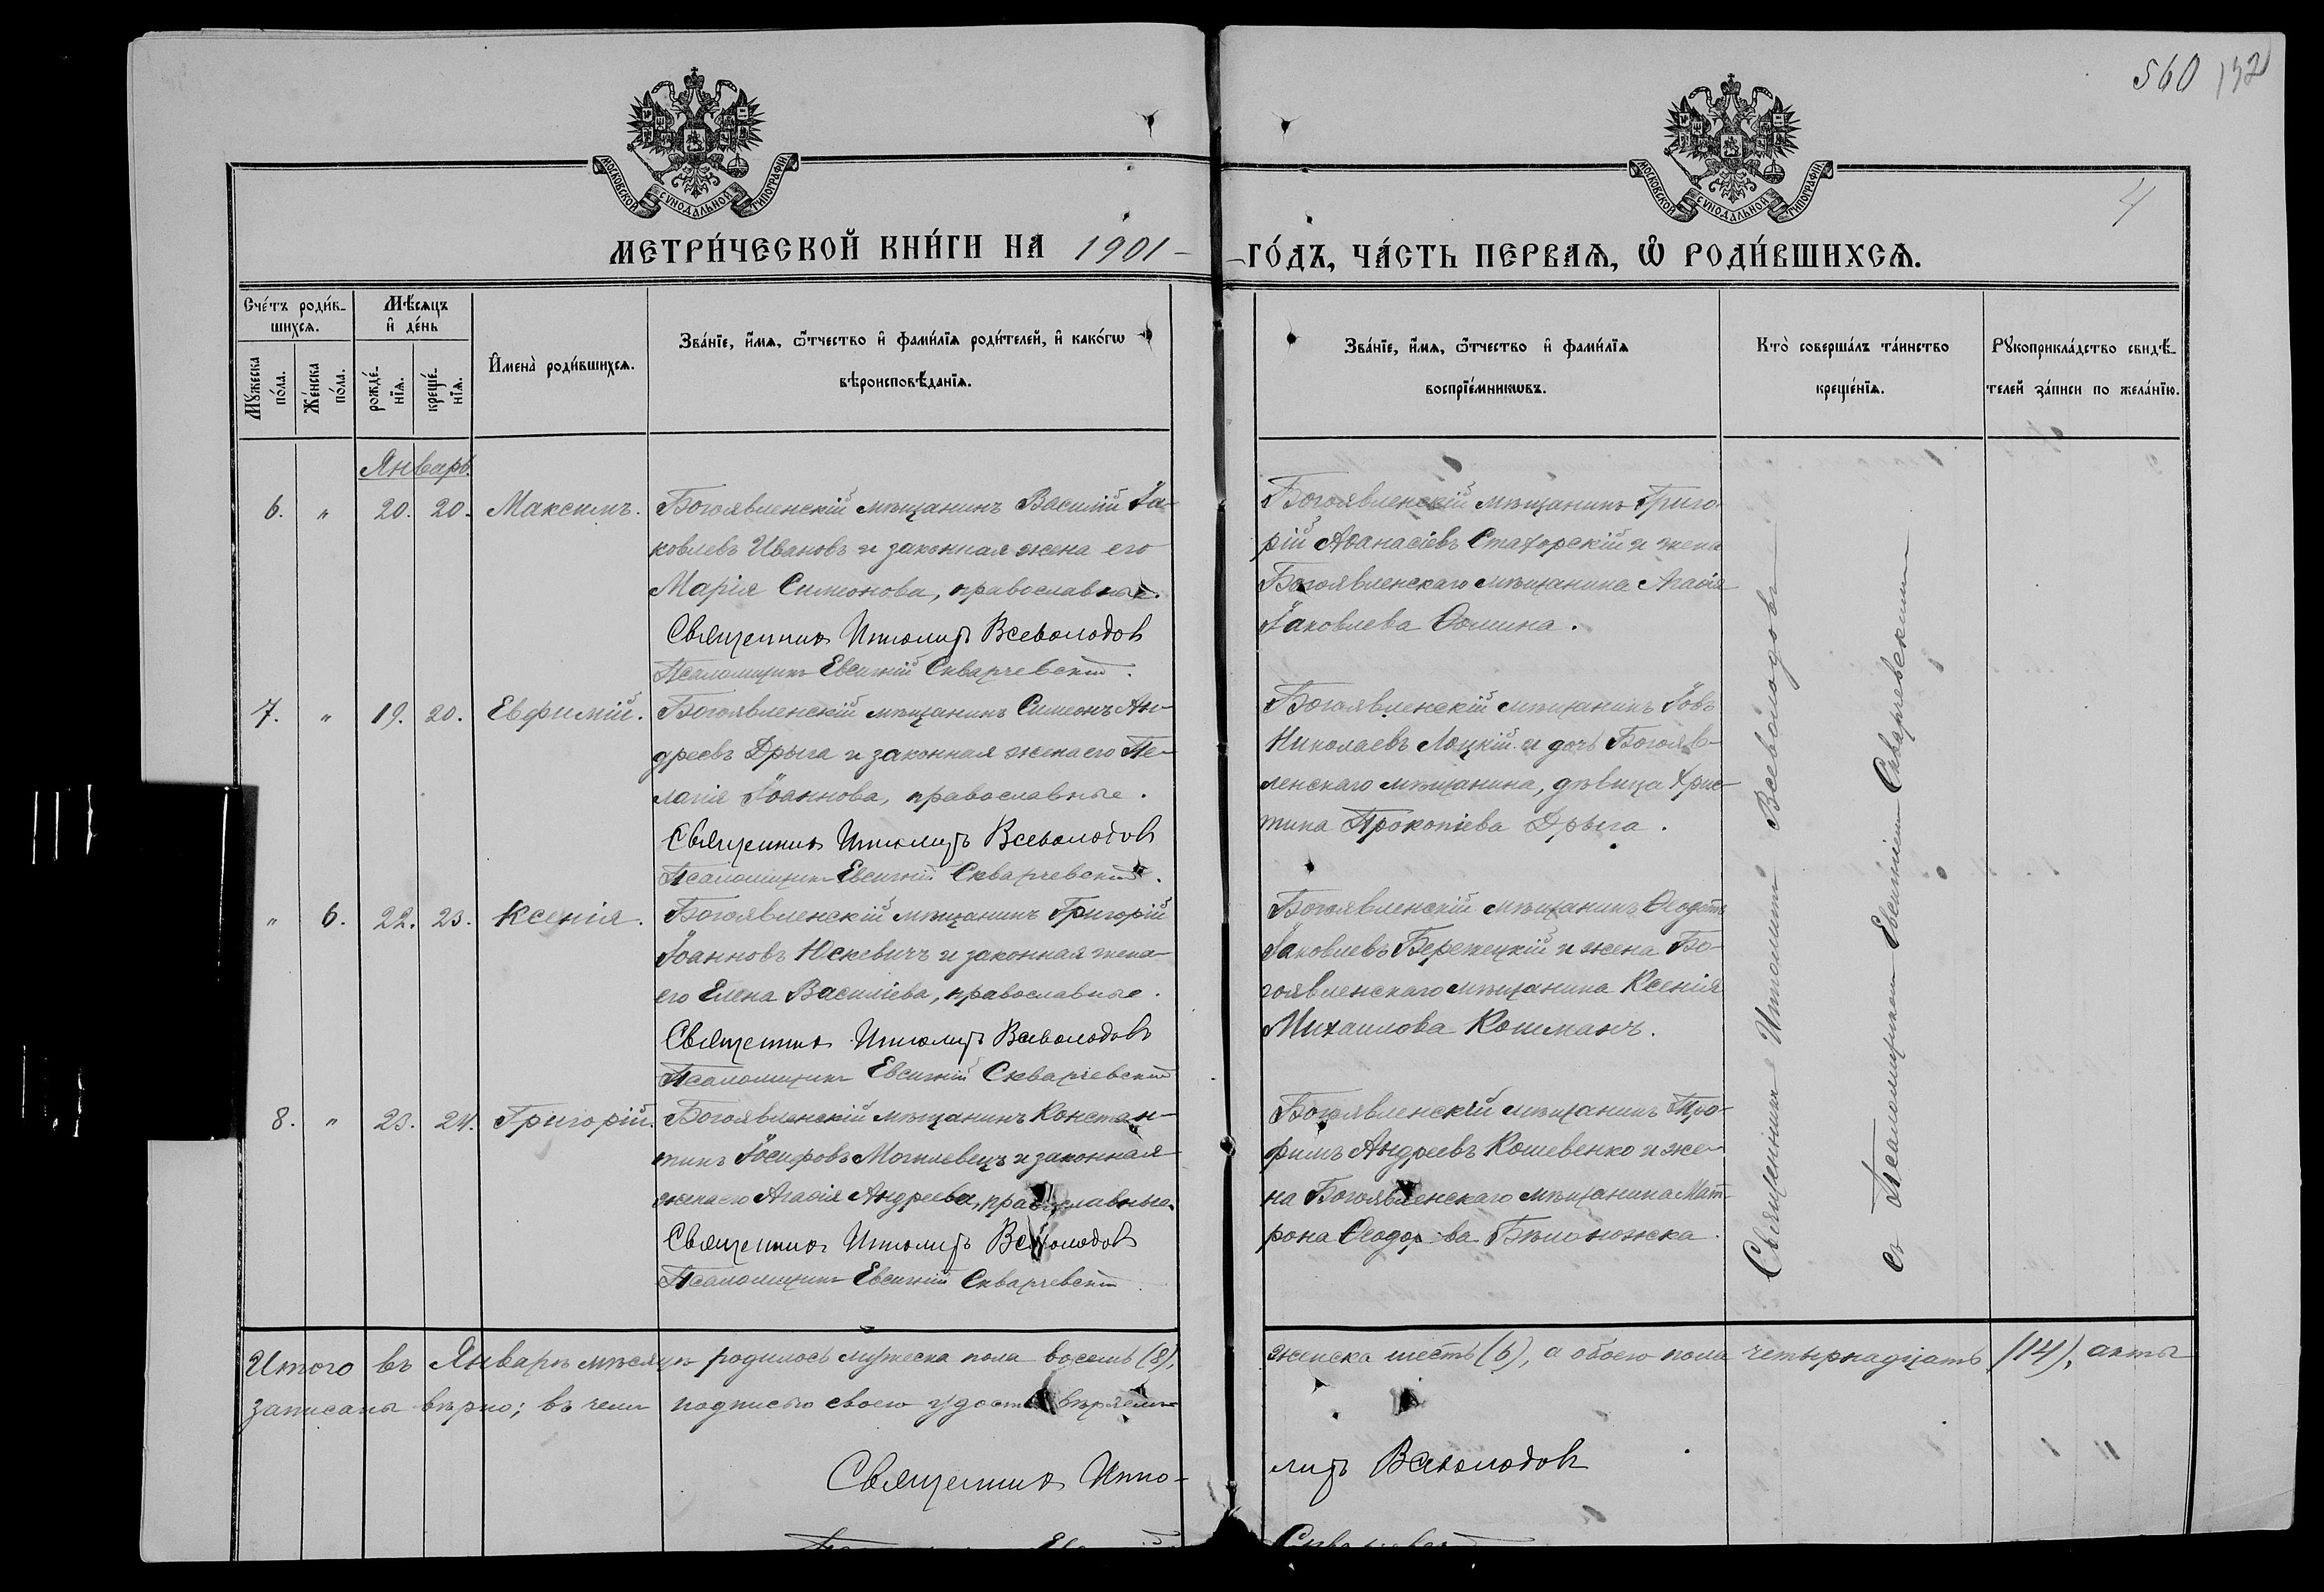 560 132
4
МОСКОВСКОЙ СѴНОДАЛЬНОЙ ТИПОГРАФІИ
МОСКОВСКОЙ СѴНОДАЛЬНОЙ ТИПОГРАФІИ
МЕТРИ́ЧЕСКОЙ КНИ́ГИ НА 1901 - ГО́ДЪ, ЧА́СТЬ ПЕРВАѦ, Ѽ РОДИ́ВШИХСѦ.
Сче́тъ роди́в-
шихсѧ.
Мѣ́сѧцъ
и҆ де́нь
Мꙋ́жеска
по́ла.
Же́нска
по́ла.
рожде́-
нїѧ.
креще́-
нїѧ.
И҆мена̀ роди́вшихсѧ.
Зва́нїе, и҆́мѧ, ѻ҆́тчество и҆ фами́лїѧ роди́телей, и҆ како́гѡ
вѣроисповѣ́данїѧ.
Зва́нїе, и҆́мѧ, ѻ҆́тчество и҆ фами́лїѧ
воспрїе́мникѡвъ.
Кто̀ соверша́лъ та́инство
креще́нїѧ.
Рꙋкоприкла́дство свидѣ́-
телей за́писи по жела́нїю.
Январь.
6. " 20. 20. Максимъ.
Богоявленскій мѣщанинъ Василій Іа-
ковлевъ Ивановъ и законная жена его
Марія Симонова, православные.
Священникъ Ипполитъ Всеволодовъ
Псаломщикъ Евсигній Скварчевскій.
Богоявленскій мѣщанинъ Григо-
рій Аѳанасіевъ Стахорскій и жена
Богоявленскаго мѣщанина Агаѳія
Іаковлева Ѳомина.
7. " 19. 20. Евфимій.
Богоявленскій мѣщанинъ Симеонъ Ан-
дреевъ Дрыга и законная жена его Пе-
лагія Іоаннова, православные.
Священникъ Ипполитъ Всеволодовъ
Псаломщикъ Евсигній Скварчевскій.
Богоявленскій мѣщанинъ Іовъ
Николаевъ Лоцкій и дочь Богояв-
ленскаго мѣщанина, дѣвица Хрис-
тина Прокопіева Дрыга.
" 6. 22. 23. Ксенія.
Богоявленскій мѣщанинъ Григорій
Іоанновъ Юскевичъ и законная жена
его Елена Василіева, православные.
Священникъ Ипполитъ Всеволодовъ
Псаломщикъ Евсигній Скварчевскій
Богоявленскій мѣщанинъ Ѳеодотъ
Іаковлевъ Бережецкій и жена Бо-
гоявленскаго мѣщанина Ксенія
Михаилова Кошманъ.
8. " 23. 24. Григорій.
Богоявленскій мѣщанинъ Констан-
тинъ Іосифовъ Могилевецъ и законная
жена его Агаѳія Андреева, православные.
Священникъ Ипполитъ Всеволодовъ
Псаломщикъ Евсигній Скварчевскій
Богоявленскій мѣщанинъ Тро-
фимъ Андреевъ Кошевенко и же-
на Богоявленскаго мѣщанина Мат-
рона Ѳеодорова
Священникъ Ипполитъ Всеволодовъ
съ Псаломщикомъ Евсигніемъ Скварчевскимъ
Итого въ Январѣ мѣсяцѣ родилось мужеска пола восемь (8), женска шесть (6), а обоего пола четырнадцать (14), акты
записаны вѣрно; въ чемъ подписью своею удостовѣряемъ
Священникъ Иппо- литъ Всеволодовъ